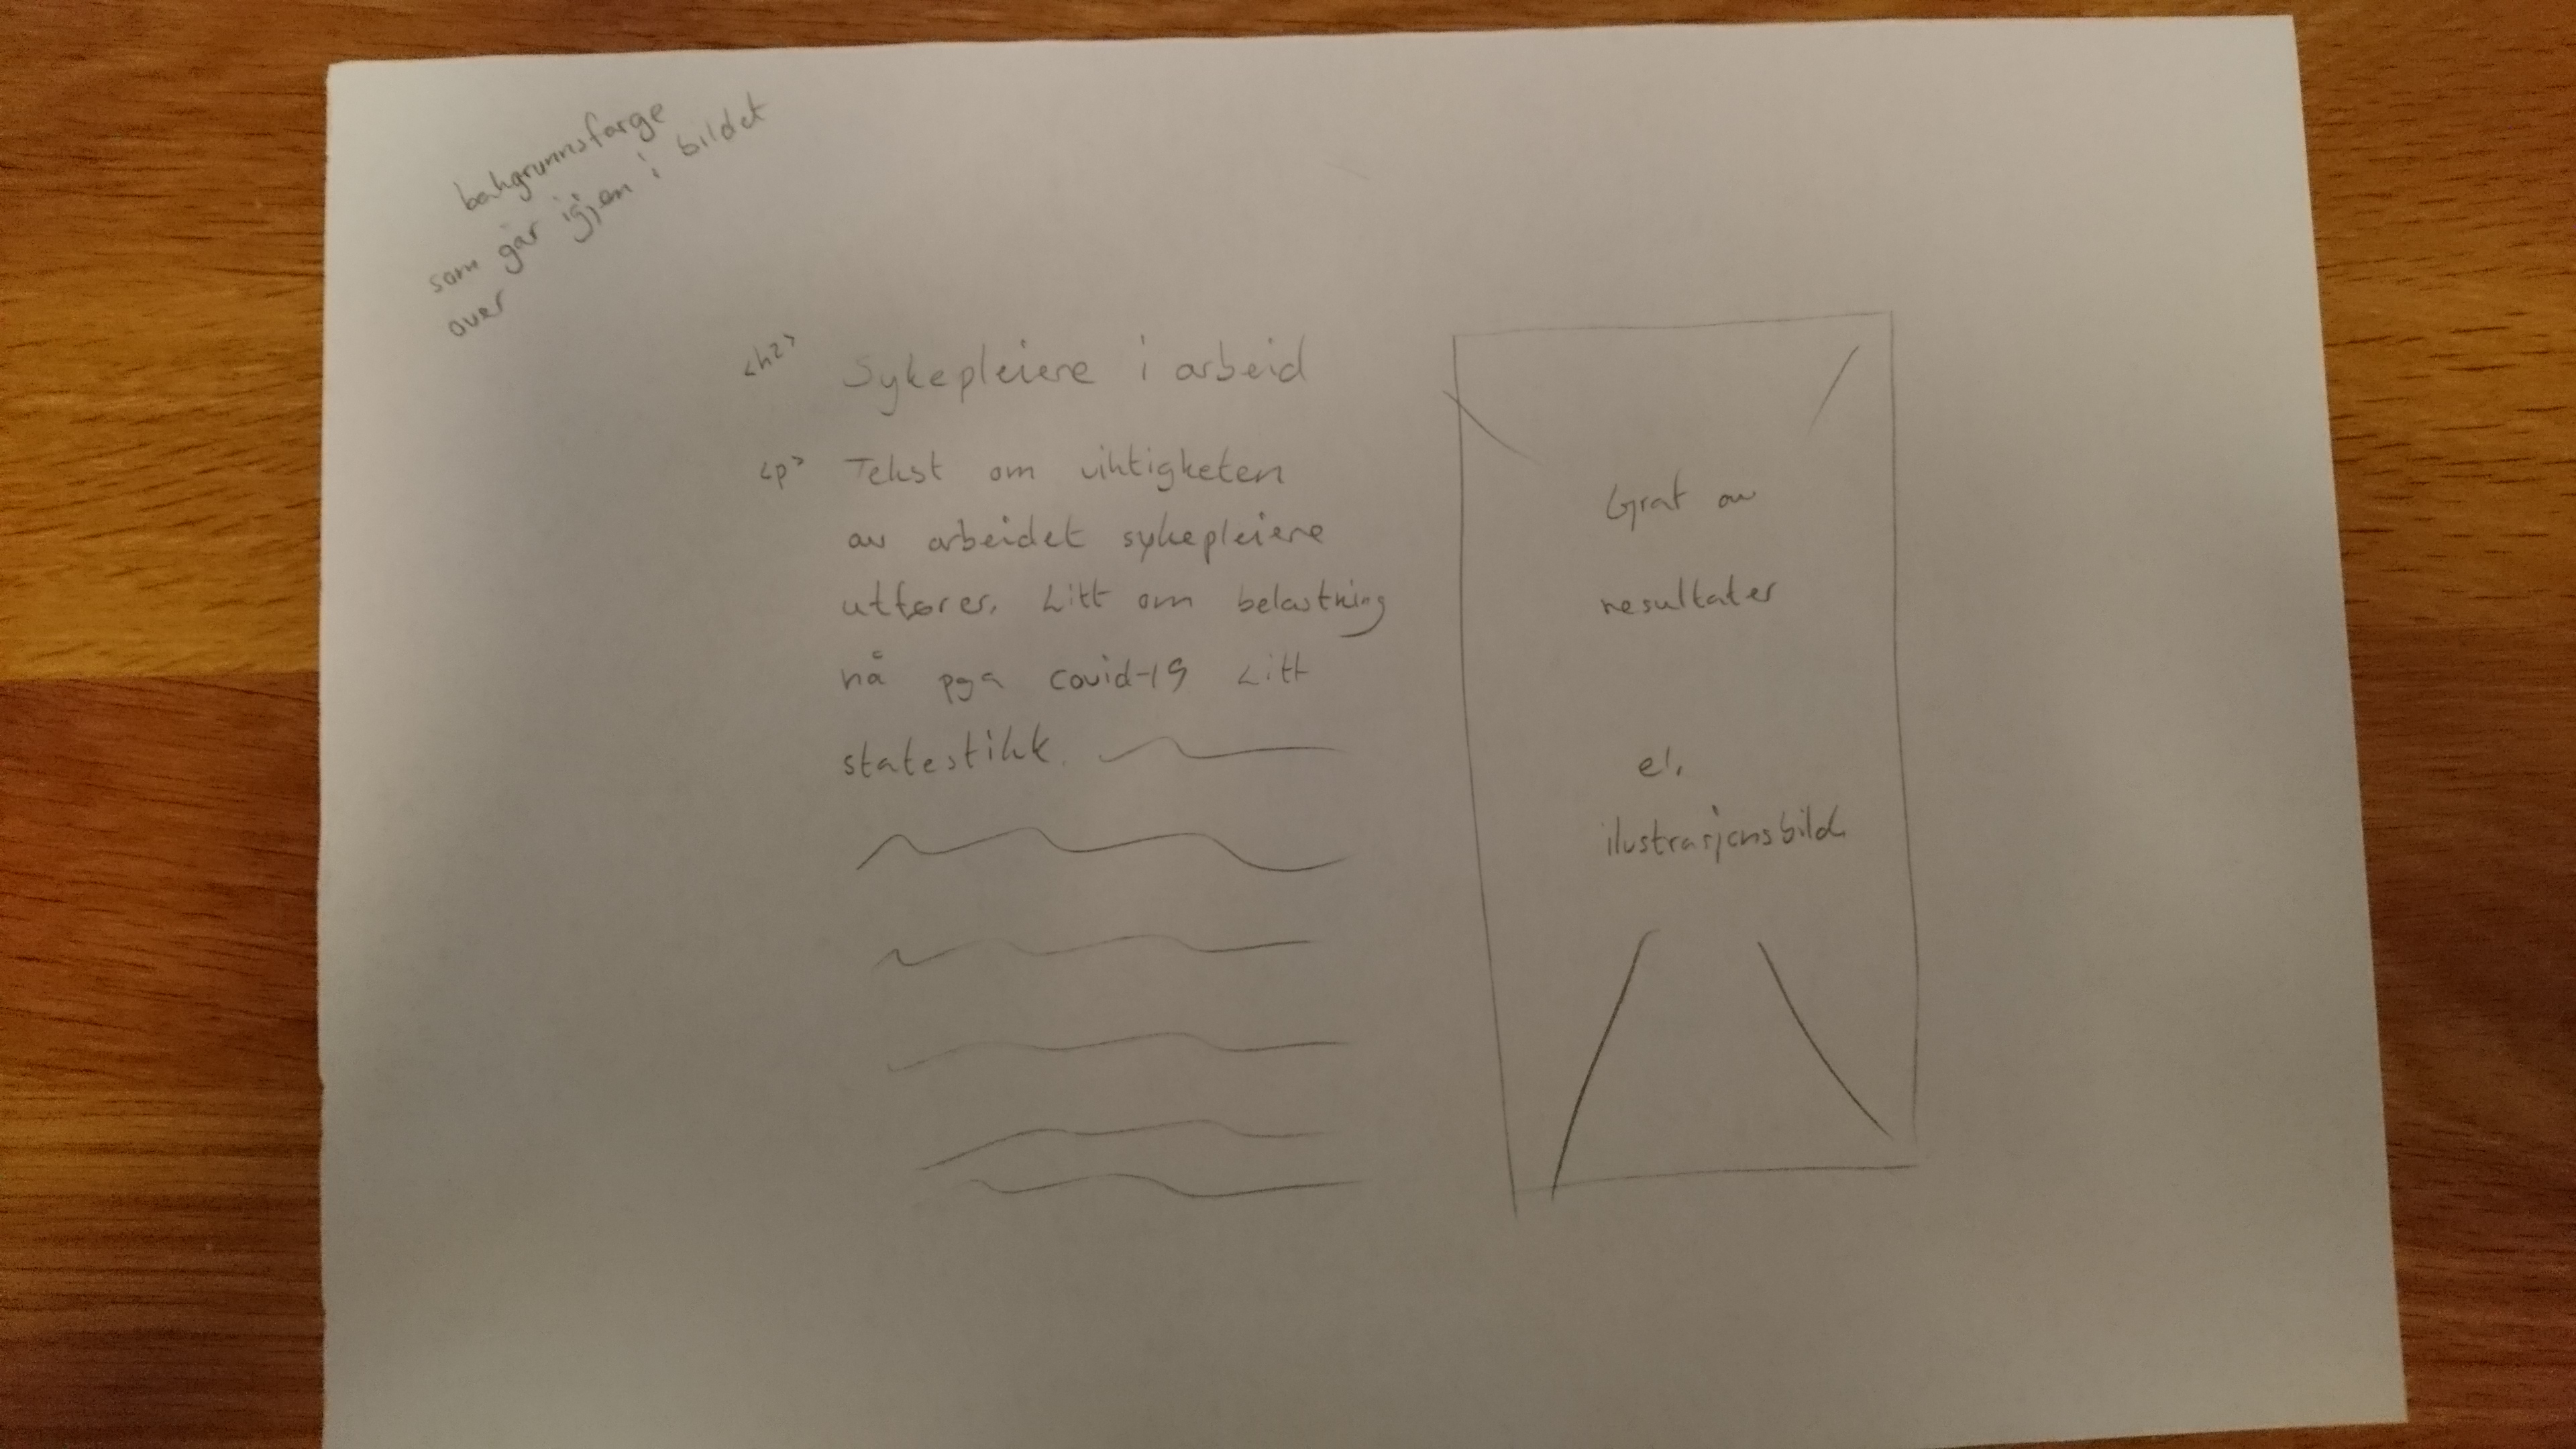 bakgrunnsfarge
som går igjen i bildet
over
<h2> Sykepleiere i arbeid
<p> Tekst om viktigheten
av arbeidet sykepleiere
utfører. Litt om belastning
nå pga covid-19 Litt
statestikk.
Graf av
resultater
el.
ilustrasjonsbild